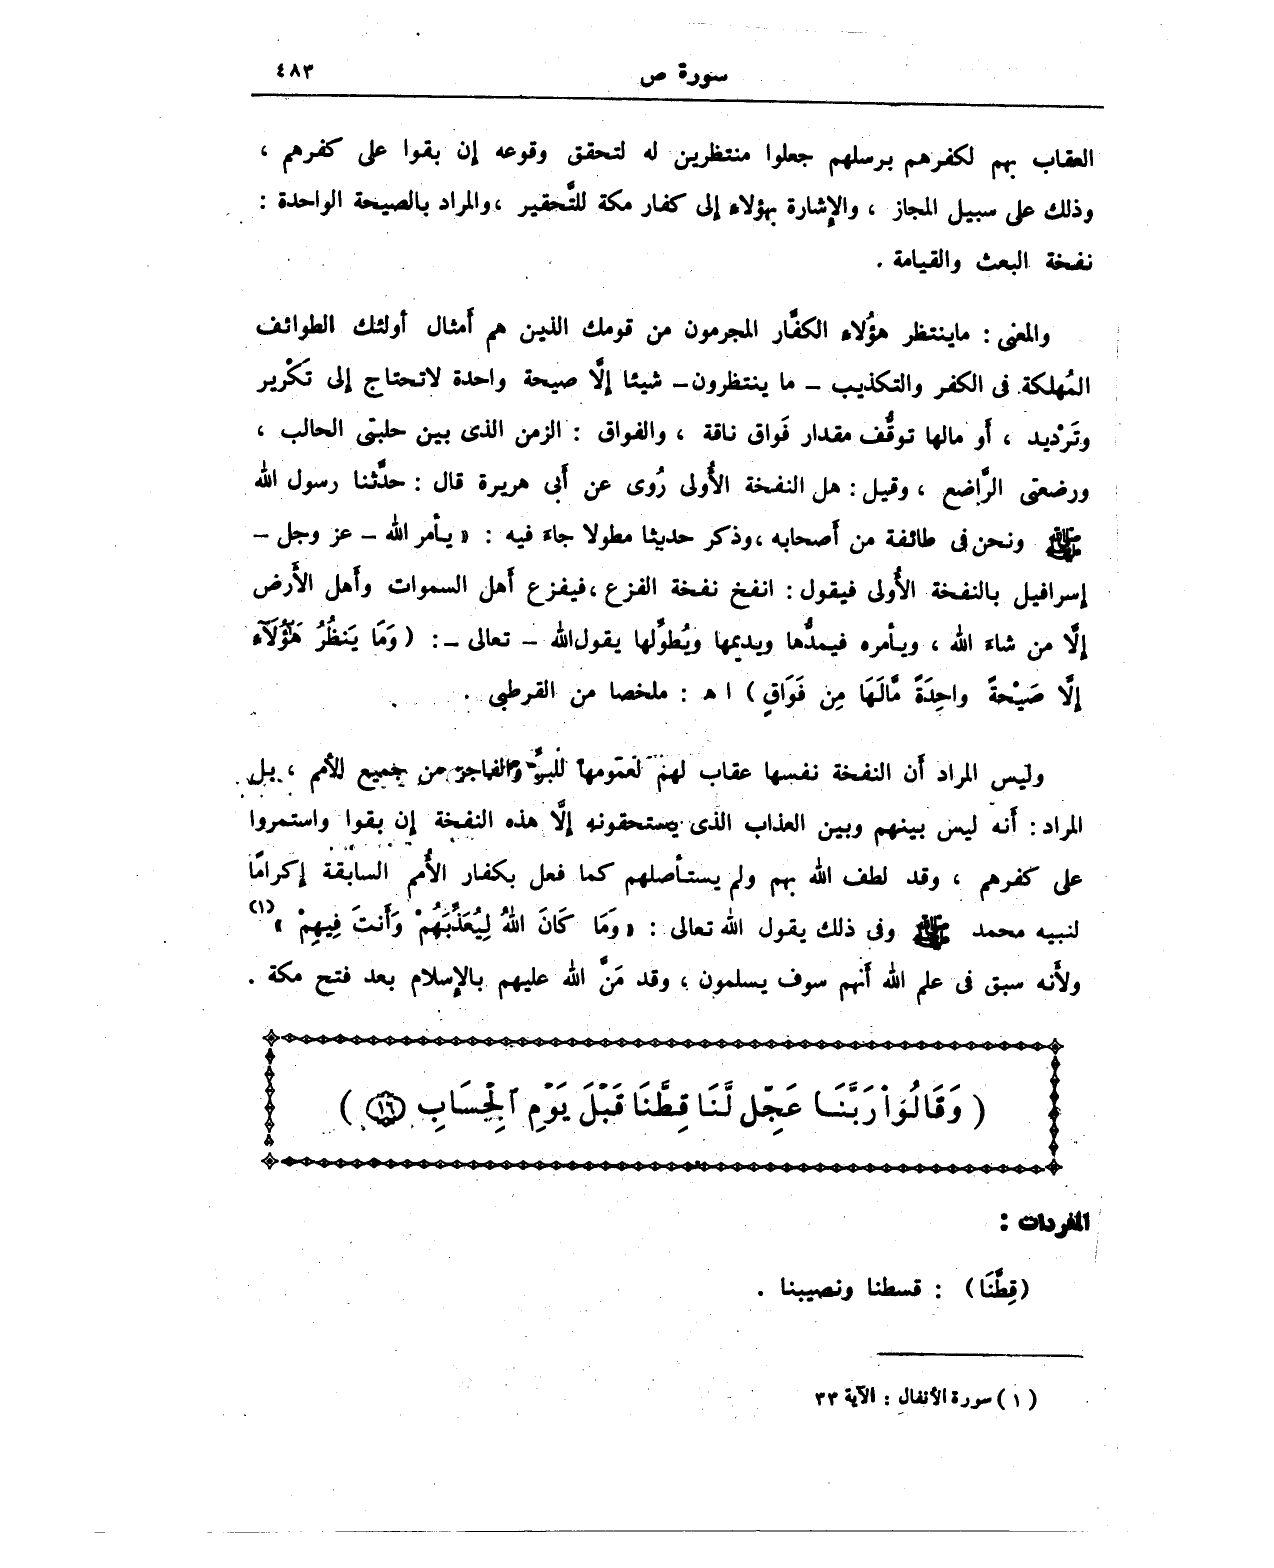 سورة ص
٤٨٣
العقاب بهم لكفرهم برسلهم جعلوا منتظرين له لتحقق وقوعه إن بقوا على كفرهم ،
وذلك على سبيل المجاز ، والإشارة بهؤلاء إلى كفار مكة للتَّحقير ، والمراد بالصيحة الواحدة :
نفخة البعث والقيامة .
والمعنى : ماينتظر هؤُلاء الكفَّار المجرمون من قومك الذين هم أَمثال أولئك الطوائف
المُهلكة فى الكفر والتكذيب – ما ينتظرون – شيئا إلَّا صيحة واحدة لاتحتاج إلى تكْرير
وتَرْديد ، أَو مالها توقُّف مقدار فَواق ناقة ، والفواق : الزمن الذى بين حلبتى الحالب ،
ورضعتى الرَّاضع ، وقيل : هل النفخة الأُولى رُوى عن أَبى هريرة قال : حدَّثنا رسول الله
ﷺ ونحن فى طائفة من أَصحابه ، وذكر حديثا مطولا جاءَ فيه : « يأمر الله – عز وجل –
إسرافيل بالنفخة الأُولى فيقول : انفخ نفخة الفزع ، فيفزع أَهل السموات وأَهل الأَرض
إلَّا من شاءَ الله ، ويأمره فيمدُّها ويديمها ويُطوِّلها يقول الله – تعالى – : ( وَمَا يَنظُرُ هَٰٓؤُلَآءِ
إلَّا صَيْحةً واحِدَةً مَّالَهَا مِن فَوَاقٍ ) ا ه : ملخصا من القرطبى .
وليس المراد أَن النفخة نفسها عقاب لهم لعمومها للبرِّ والفاجر من جميع الأمم ، بل
المراد : أَنه ليس بينهم وبين العذاب الذى يستحقونه إلَّا هذه النفخة إن بقوا واستمروا
على كفرهم ، وقد لطف الله بهم ولم يستأصلهم كما فعل بكفار الأُمم السابقة إكرامًا
لنبيه محمد ﷺ وفى ذلك يقول الله تعالى : « وَمَا كَانَ اللهُ لِيُعَذِّبَهُمْ وَأَنتَ فِيهِمْ » (١)
ولأَنه سبق فى علم الله أَنهم سوف يسلمون ، وقد مَنَّ الله عليهم بالإسلام بعد فتح مكة .
( وَقَالُوا۟ رَبَّنَا عَجِّل لَّنَا قِطَّنَا قَبْلَ يَوْمِ ٱلْحِسَابِ ﴿١٦﴾ )
المفردات :
(قِطَّنَا) : قسطنا ونصيبنا .
( ١ ) سورة الأنفال : الآية ٣٣